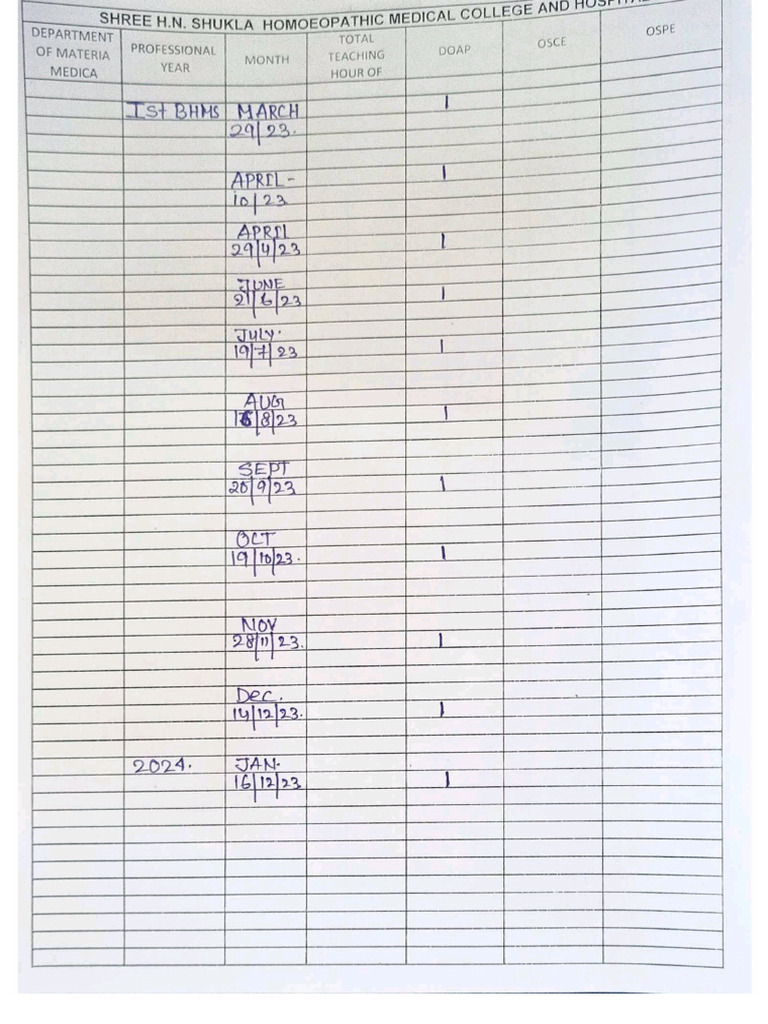 SHREE H.N. SHUKLA HOMOEOPATHIC MEDICAL COLLEGE AND
DEPARTMENT OF MATERIA MEDICA PROFESSIONAL YEAR MONTH TOTAL TEACHING HOUR OF DOAP OSCE OSPE
Ist BHMS MARCH 1
29/23.
APRIL- 1
10/23
APRIL
29/4/23 1
JUNE
21/6/23 1
JULY.
19/7/23 1
AUG
16/8/23 1
SEPT
20/9/23 1
OCT
19/10/23. 1
NOV
28/11/23. 1
Dec.
14/12/23. 1
2024. JAN.
16/12/23 1